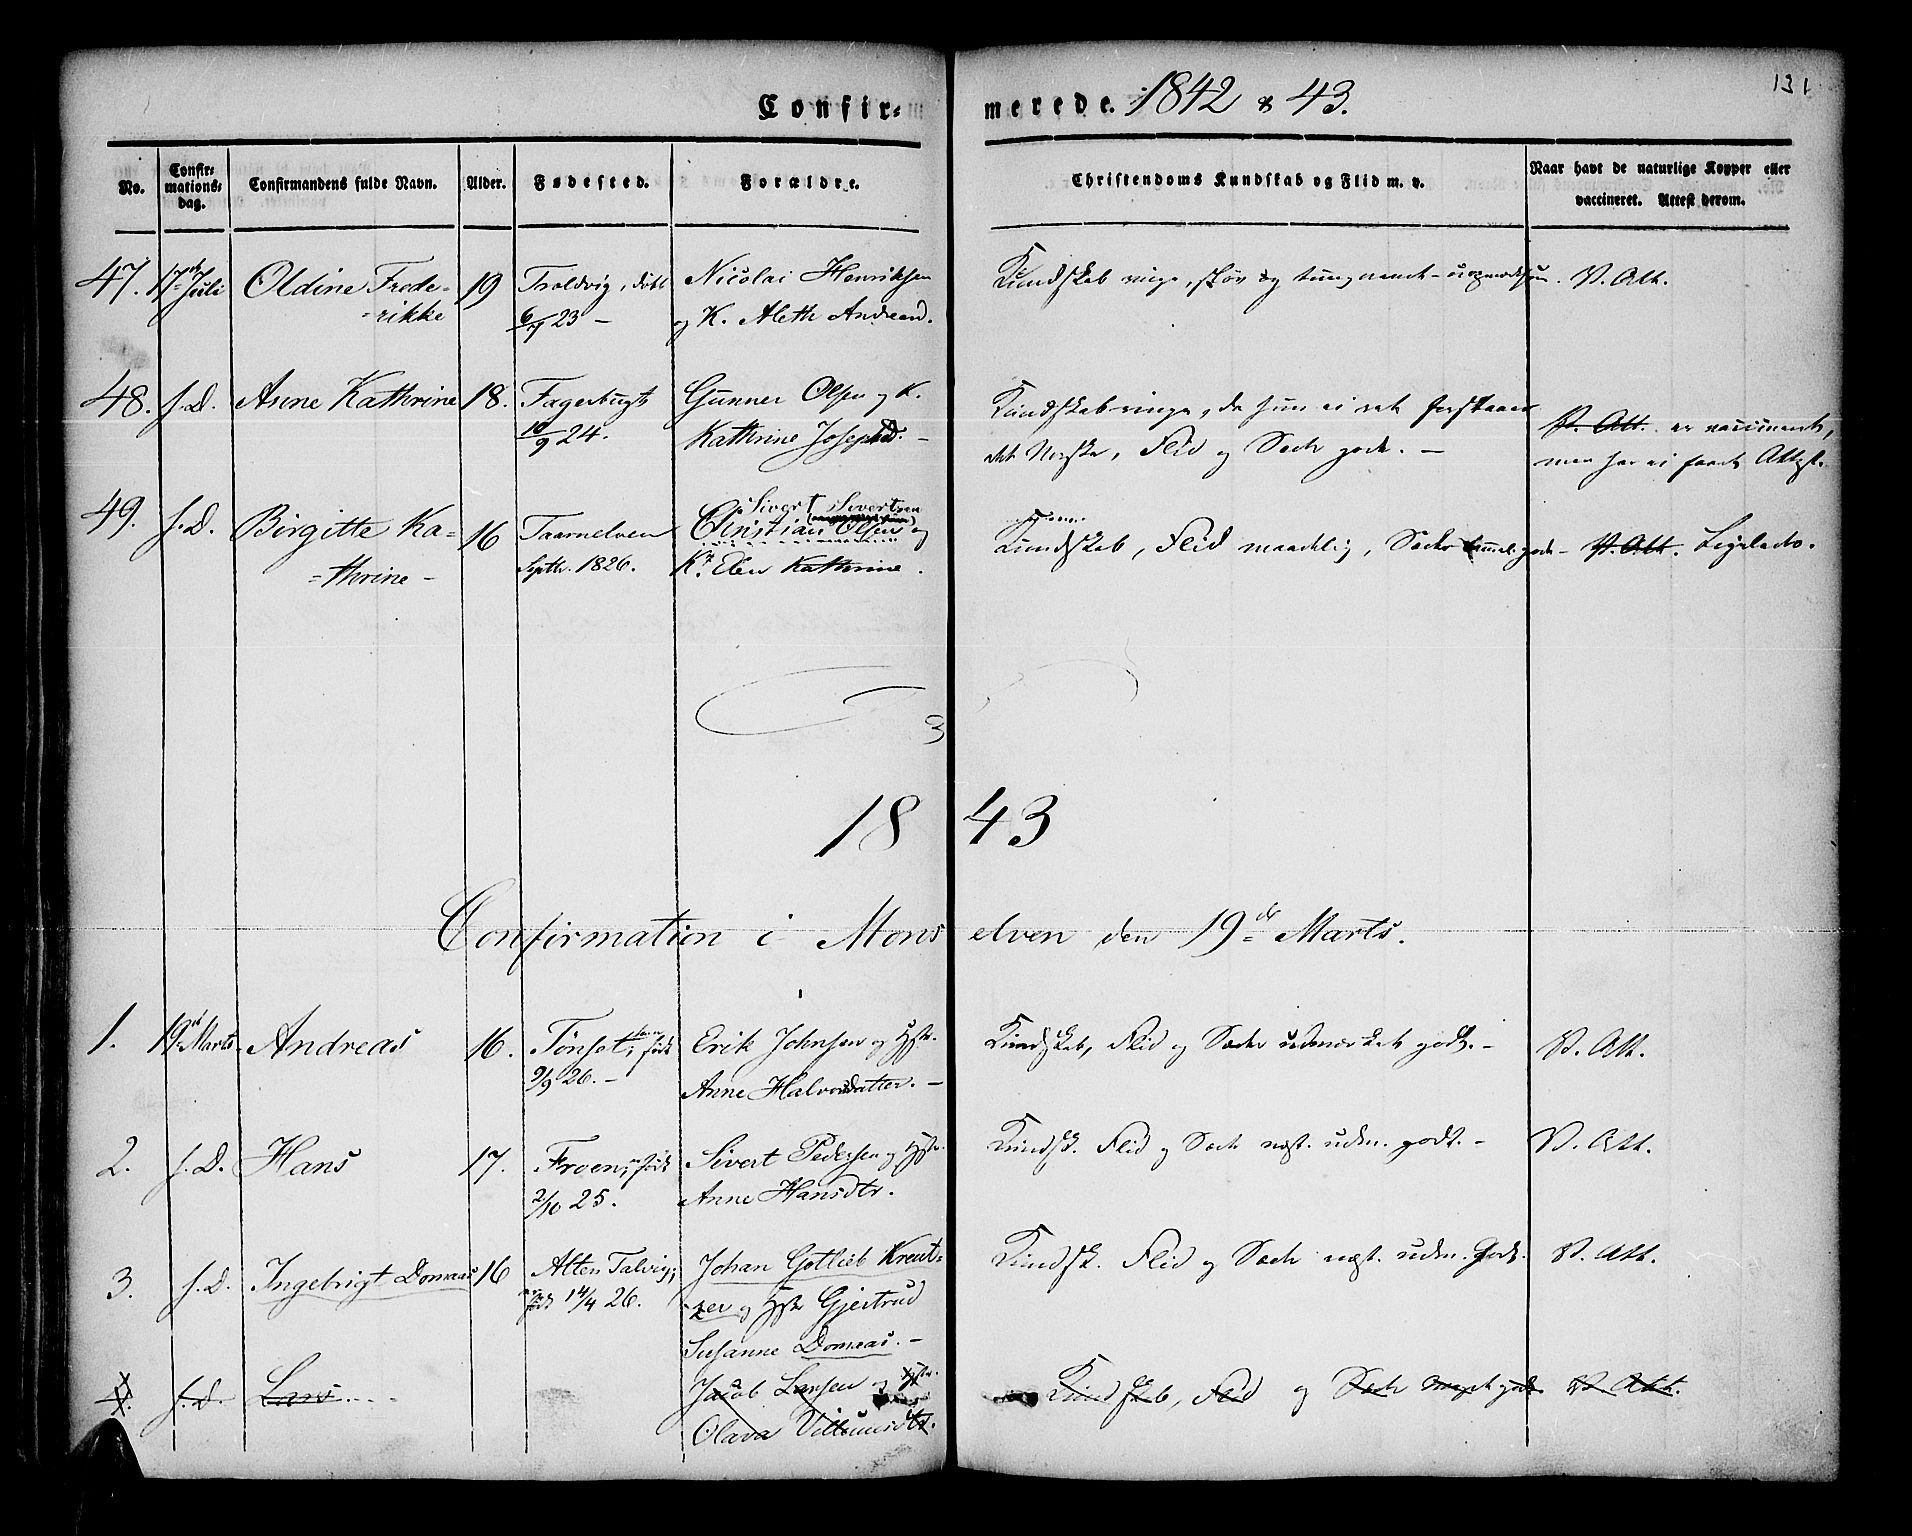 131
Confir- merede. 1842 & 43.
No. Confirmationsdag. Confirmandens fulde Navn. Alder. Fødested. Forældre. Christendoms Kundskab og Flid m. v. Naar havt de naturlige Kopper eller vaccineret. Attest derom.
47. 17de Juli Oldine Frede- 19 Troldvig, døbt Nicolai Henriksen Kundskab ringe, V. Att.
=rikke 6/7 23 – og K. Aleth Andreasd.
48. s.D. Anne Kathrine 18. Fagerbugt Gunner Olsen og K. Kundskab ringe, da hun ei ret forstaaer V. Att. er vaccineret,
10/9 24. Kathrine Josephsd. – det Norske, Flid og Sæder gode. – men har ei faaet Attest.
49. s.D. Birgitte Ka- 16 Taarnelven Sivert Sivertsen
Christian Olsen og Kundskab, Flid maadelig, Sæder gode – V. Att. Ligeledes.
=thrine – Septbr. 1826. Kr. Elen Kathrine.
18 43
Confirmation i Mons elven den 19de Marts.
1. 19de Marts Andreas 16. Tønset, født Erik Johnsen og Hstr. Kundskab, Flid og Sæder udmærket godt. – V. Att.
9/9 26. – Anne Halvorsdatter. –
2. s.D. Hans 17. Froen, født Sivert Pedersen og Hstr. Kundsk. Flid og Sæder næst. udm. godt. – V. Att.
2/10 25. Anne Hansdtr.
3. s.D. Ingebrigt Domaas 16 Alten Talvig; Johan Gotlieb Kreut- Kundsk. Flid og Sæder næst. udm. Godt. V. Att.
født 14/4 26. zer og Hstr Gjertrud
Susanne Domaas. –
4. s.D. Lars Jacob Larsen og Hstr. Kundskab, Flid og Sæder meget gode V. Att.
Olava Villumsdtr.